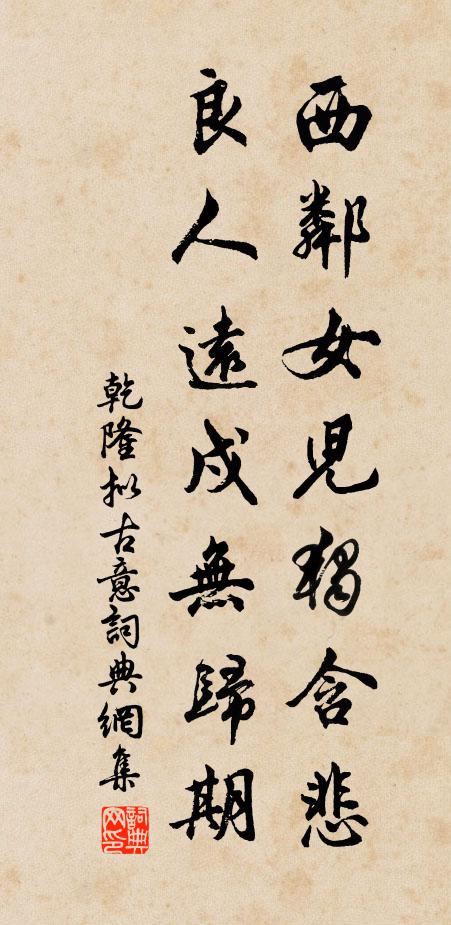 西鄰女兒獨含悲
良人遠戍無歸期
乾隆擬古意詞典網集
詞典网印